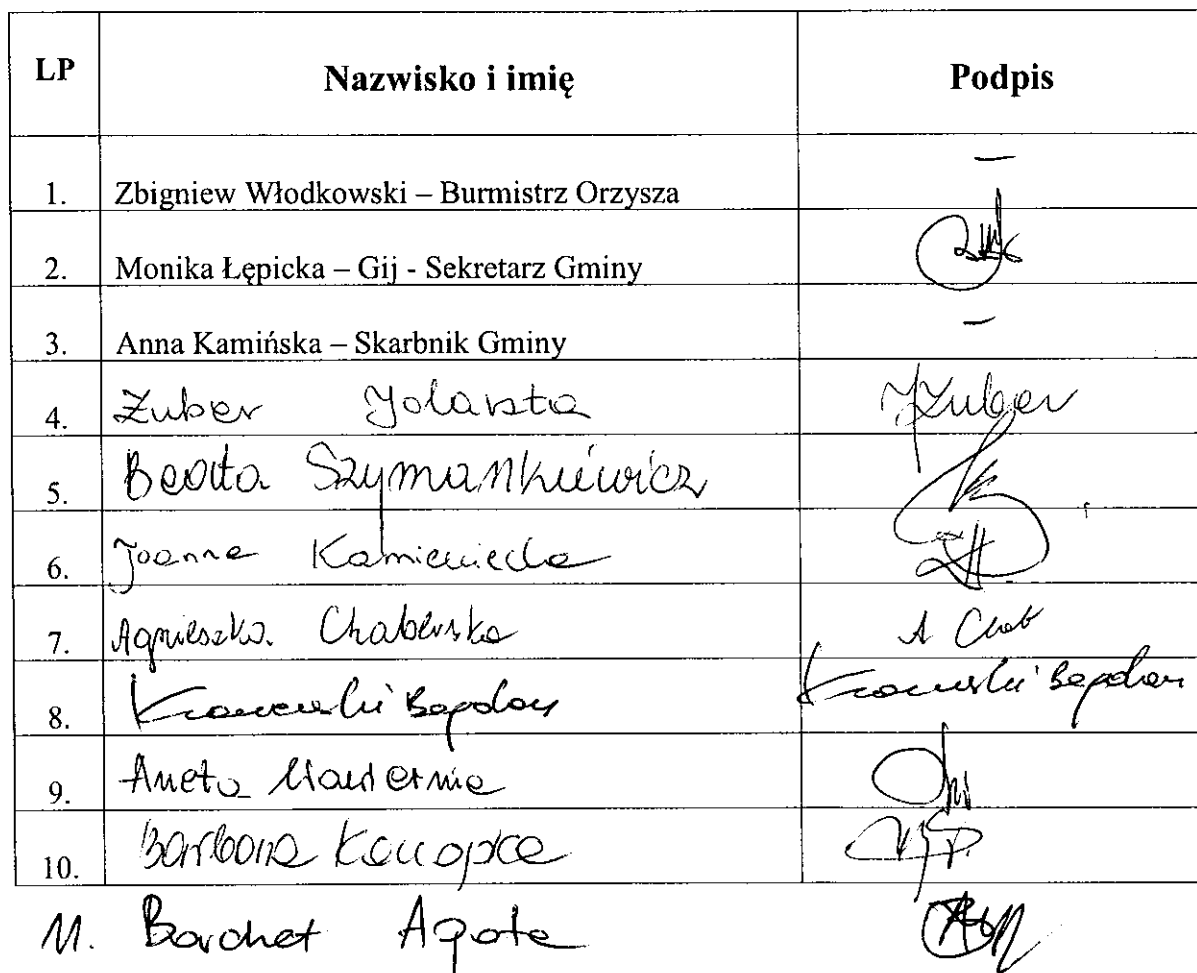 LP Nazwisko i imię Podpis
1. Zbigniew Włodkowski – Burmistrz Orzysza –
2. Monika Łępicka – Gij - Sekretarz Gminy
3. Anna Kamińska – Skarbnik Gminy –
4. Żuber Jolanta JŻuber
5. Beata Szymankiewicz
6. Joanna Kamieniecka
7. Agnieszka Chaberska A Chab
8. Bogdan Bogdan
9. Aneta
10. Barbara Konopka
11. Borchet Agata